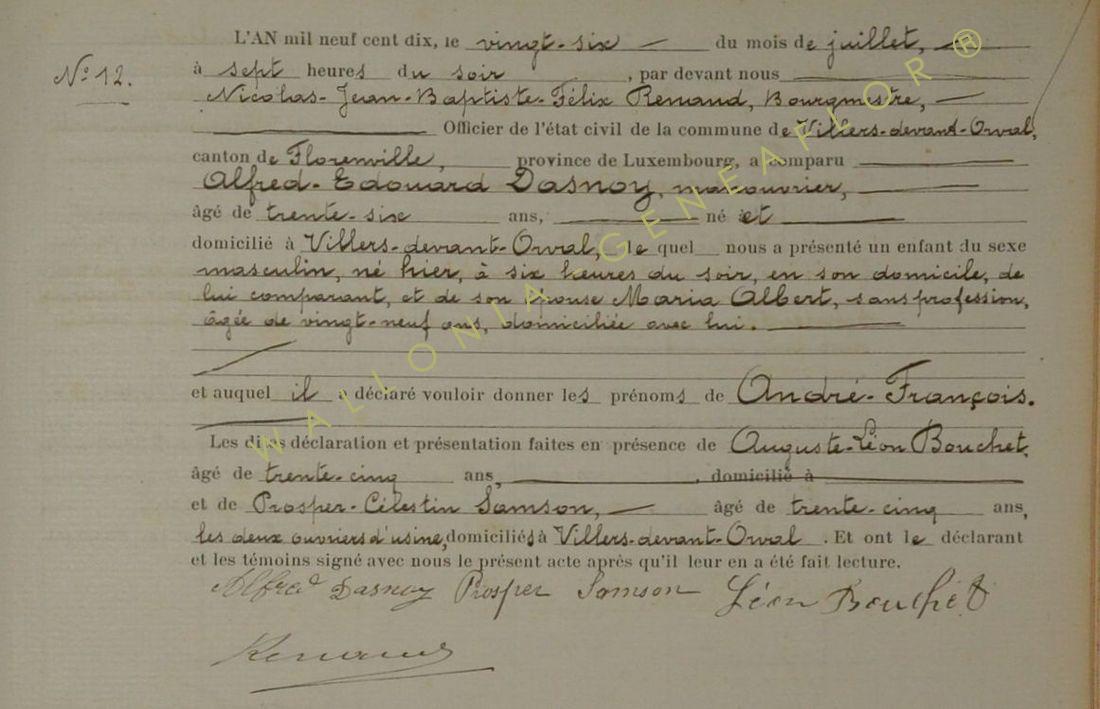 L'AN mil neuf cent dix, le vingt-six du mois de juillet,
No 12.
à sept heures du soir, par devant nous
Nicolas-Jean-Baptiste-Félix Renaud, Bourgmestre,
Officier de l'état civil de la commune de Villers-devant-Orval,
canton de Florenville, province de Luxembourg, a comparu
Alfred-Edouard Dasnoy, manouvrier,
âgé de trente-six ans, né et
domicilié à Villers-devant-Orval, le quel nous a présenté un enfant du sexe
masculin, né hier, à six heures du soir, en son domicile, de
lui comparant, et de son épouse Maria Albert, sans profession,
âgée de vingt-neuf ans, domiciliée avec lui.
et auquel il a déclaré vouloir donner les prénoms de André-François.
Les dites déclaration et présentation faites en présence de Auguste-Léon Bouchet,
âgé de trente-cinq ans, domicilié à
et de Prosper-Célestin Samson, âgé de trente-cinq ans,
les deux ouvriers d'usine, domiciliés à Villers-devant-Orval. Et ont le déclarant
et les témoins signé avec nous le présent acte après qu'il leur en a été fait lecture.
Alfred Dasnoy Prosper Samson Léon Bouchet
Renaud
WALLONIA GENEAFLOR ®